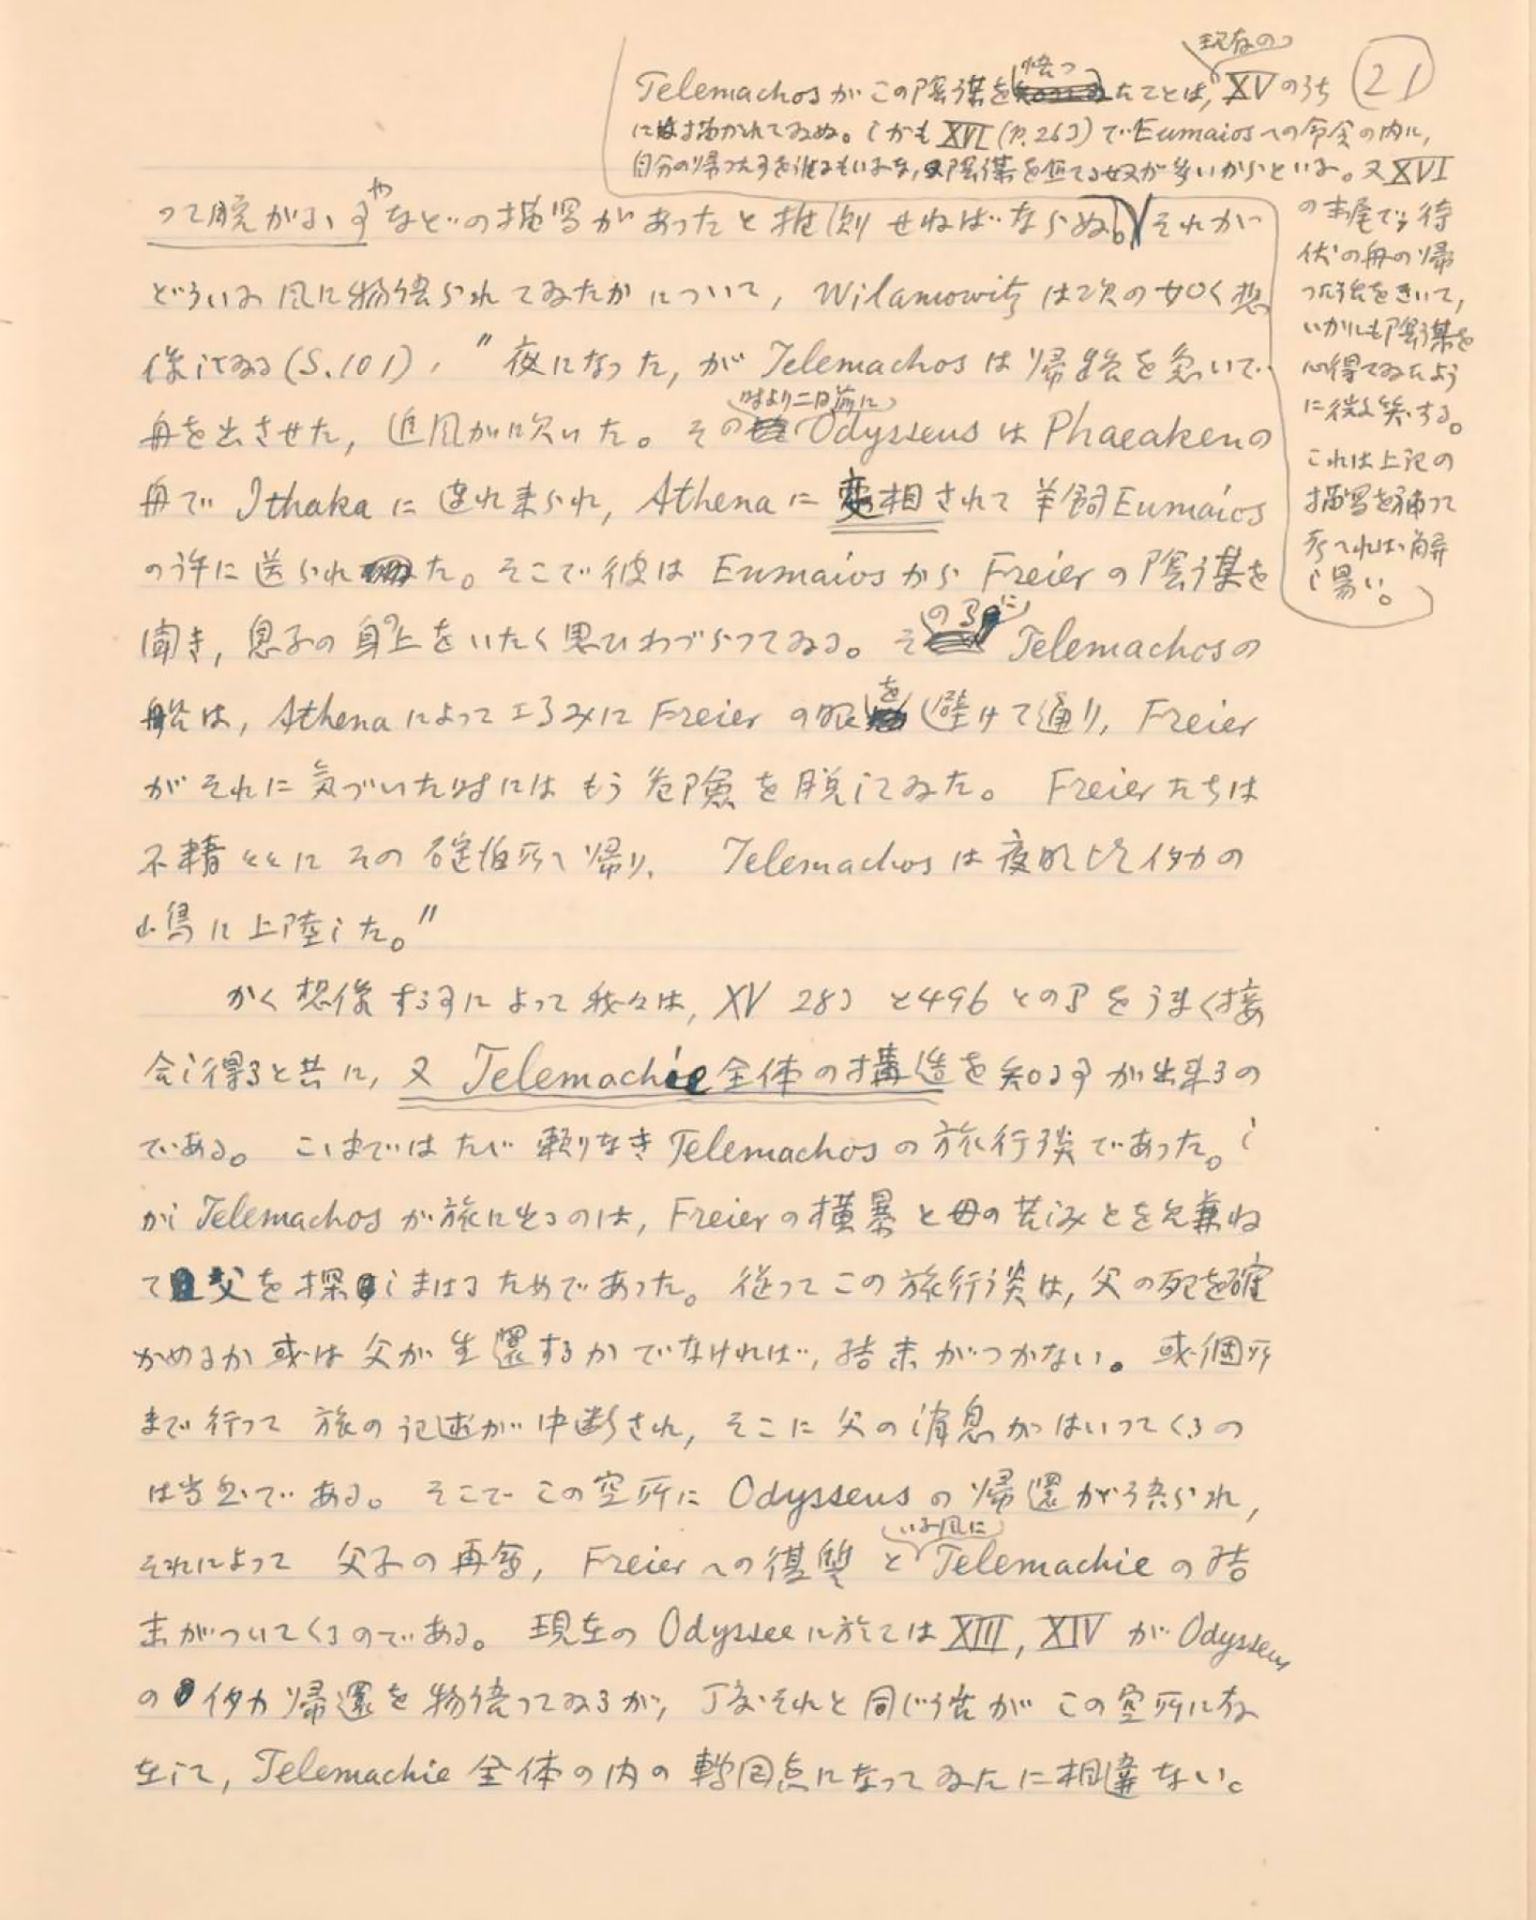 21
現存の
悟つ
Telemachosがこの陰謀をたことは, XVのうち
には描かれてゐぬ。しかもXVI (P.263)でEumaiosへの命令の内に,
自分の帰つた事を誰にもいふな, 陰謀を企てる奴が多いからといふ。又XVI
の末尾で, 待
伏の舟の帰
つた話をきいて,
いかにも陰謀を
心得てゐたよう
に微笑する。
これは上記の
描写を補って
考へれば解
し易い。
や
って脱がふ事などの描写があったと推測せねばならぬ。それが
どういふ風に物語られてゐたかについて, Wilamowitzは次の如く想
像してゐる(S.101), "夜になった, がTelemachosは帰路を急いで
時より二日前に
舟を出させた, 追風が吹いた。そのOdysseusはPhaeakenの
舟でIthakaに連れ来られ, Athenaに変相されて羊飼Eumaios
の許に送られた。そこで彼はEumaiosからFreierの陰謀を
の間に
聞き, 息子の身の上をいたく思ひわづらつてゐる。そTelemachosの
を
船は, Athenaによって巧みにFreierの眼避けて通り, Freier
がそれに気づいた時にはもう危険を脱してゐた。Freierたちは
不精々々にその碇泊所へ帰り, Telemachosは夜明けにイタカの
小島に上陸した。"
かく想像する事によって我々は, XV 283と496との間をうまく接
合し得ると共に, 又Telemachie全体の構造を知る事が出来るの
である。これまではたゞ頼りなきTelemachosの旅行談であった。し
かしTelemachosが旅に出るのは, Freierの横暴と母の苦しみとを見兼ね
て父を探しまはるためであった。従ってこの旅行談は, 父の死を確
かめるか或は父が生還するかでなければ, 結末がつかない。或個所
まで行って旅の記述が中断され, そこに父の消息がはいってくるの
は当然である。そこでこの空所にOdysseusの帰還が語られ,
いふ風に
それによって父子の再会, Freierへの復讐とTelemachieの結
末がついてくるのである。現在のOdysseeに於てはXIII, XIVがOdysseus
のイタカ帰還を物語ってゐるが, 丁度それと同じ話がこの空所に存
在して, Telemachie全体の内の転回点になってゐたに相違ない。